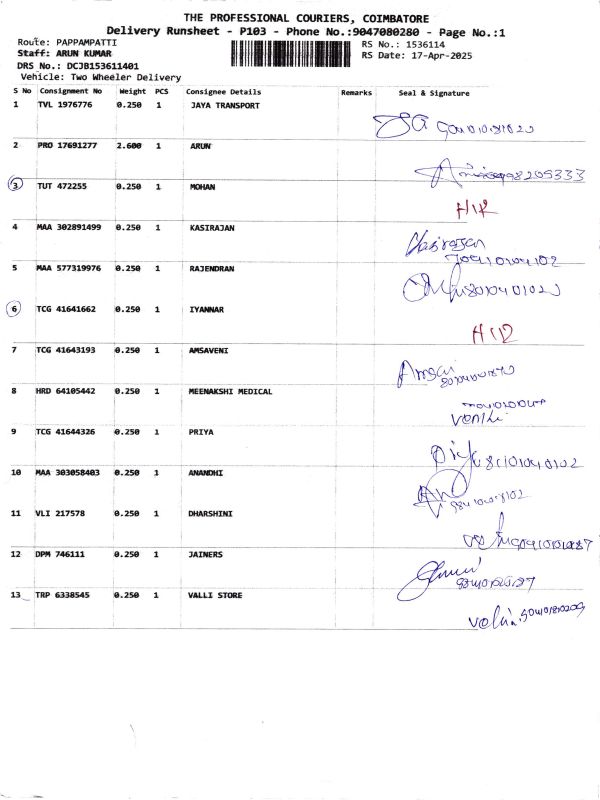 THE PROFESSIONAL COURIERS, COIMBATORE
Delivery Runsheet - P103 - Phone No.:9047080280 - Page No.:1
Route: PAPPAMPATTI
RS No.: 1536114
Staff: ARUN KUMAR
RS Date: 17-Apr-2025
DRS No.: DCJB153611401
Vehicle: Two Wheeler Delivery
S No Consignment No Weight PCS Consignee Details Remarks Seal & Signature
1 TVL 1976776 0.250 1 JAYA TRANSPORT
2 PRO 17691277 2.600 1 ARUN
3 TUT 472255 0.250 1 MOHAN
4 MAA 302891499 0.250 1 KASIRAJAN
Kasirajan
5 MAA 577319976 0.250 1 RAJENDRAN
6 TCG 41641662 0.250 1 IYANNAR
7 TCG 41643193 0.250 1 AMSAVENI
8 HRD 64105442 0.250 1 MEENAKSHI MEDICAL
9 TCG 41644326 0.250 1 PRIYA
10 MAA 303058403 0.250 1 ANANDHI
11 VLI 217578 0.250 1 DHARSHINI
12 DPM 746111 0.250 1 JAINERS
13 TRP 6338545 0.250 1 VALLI STORE